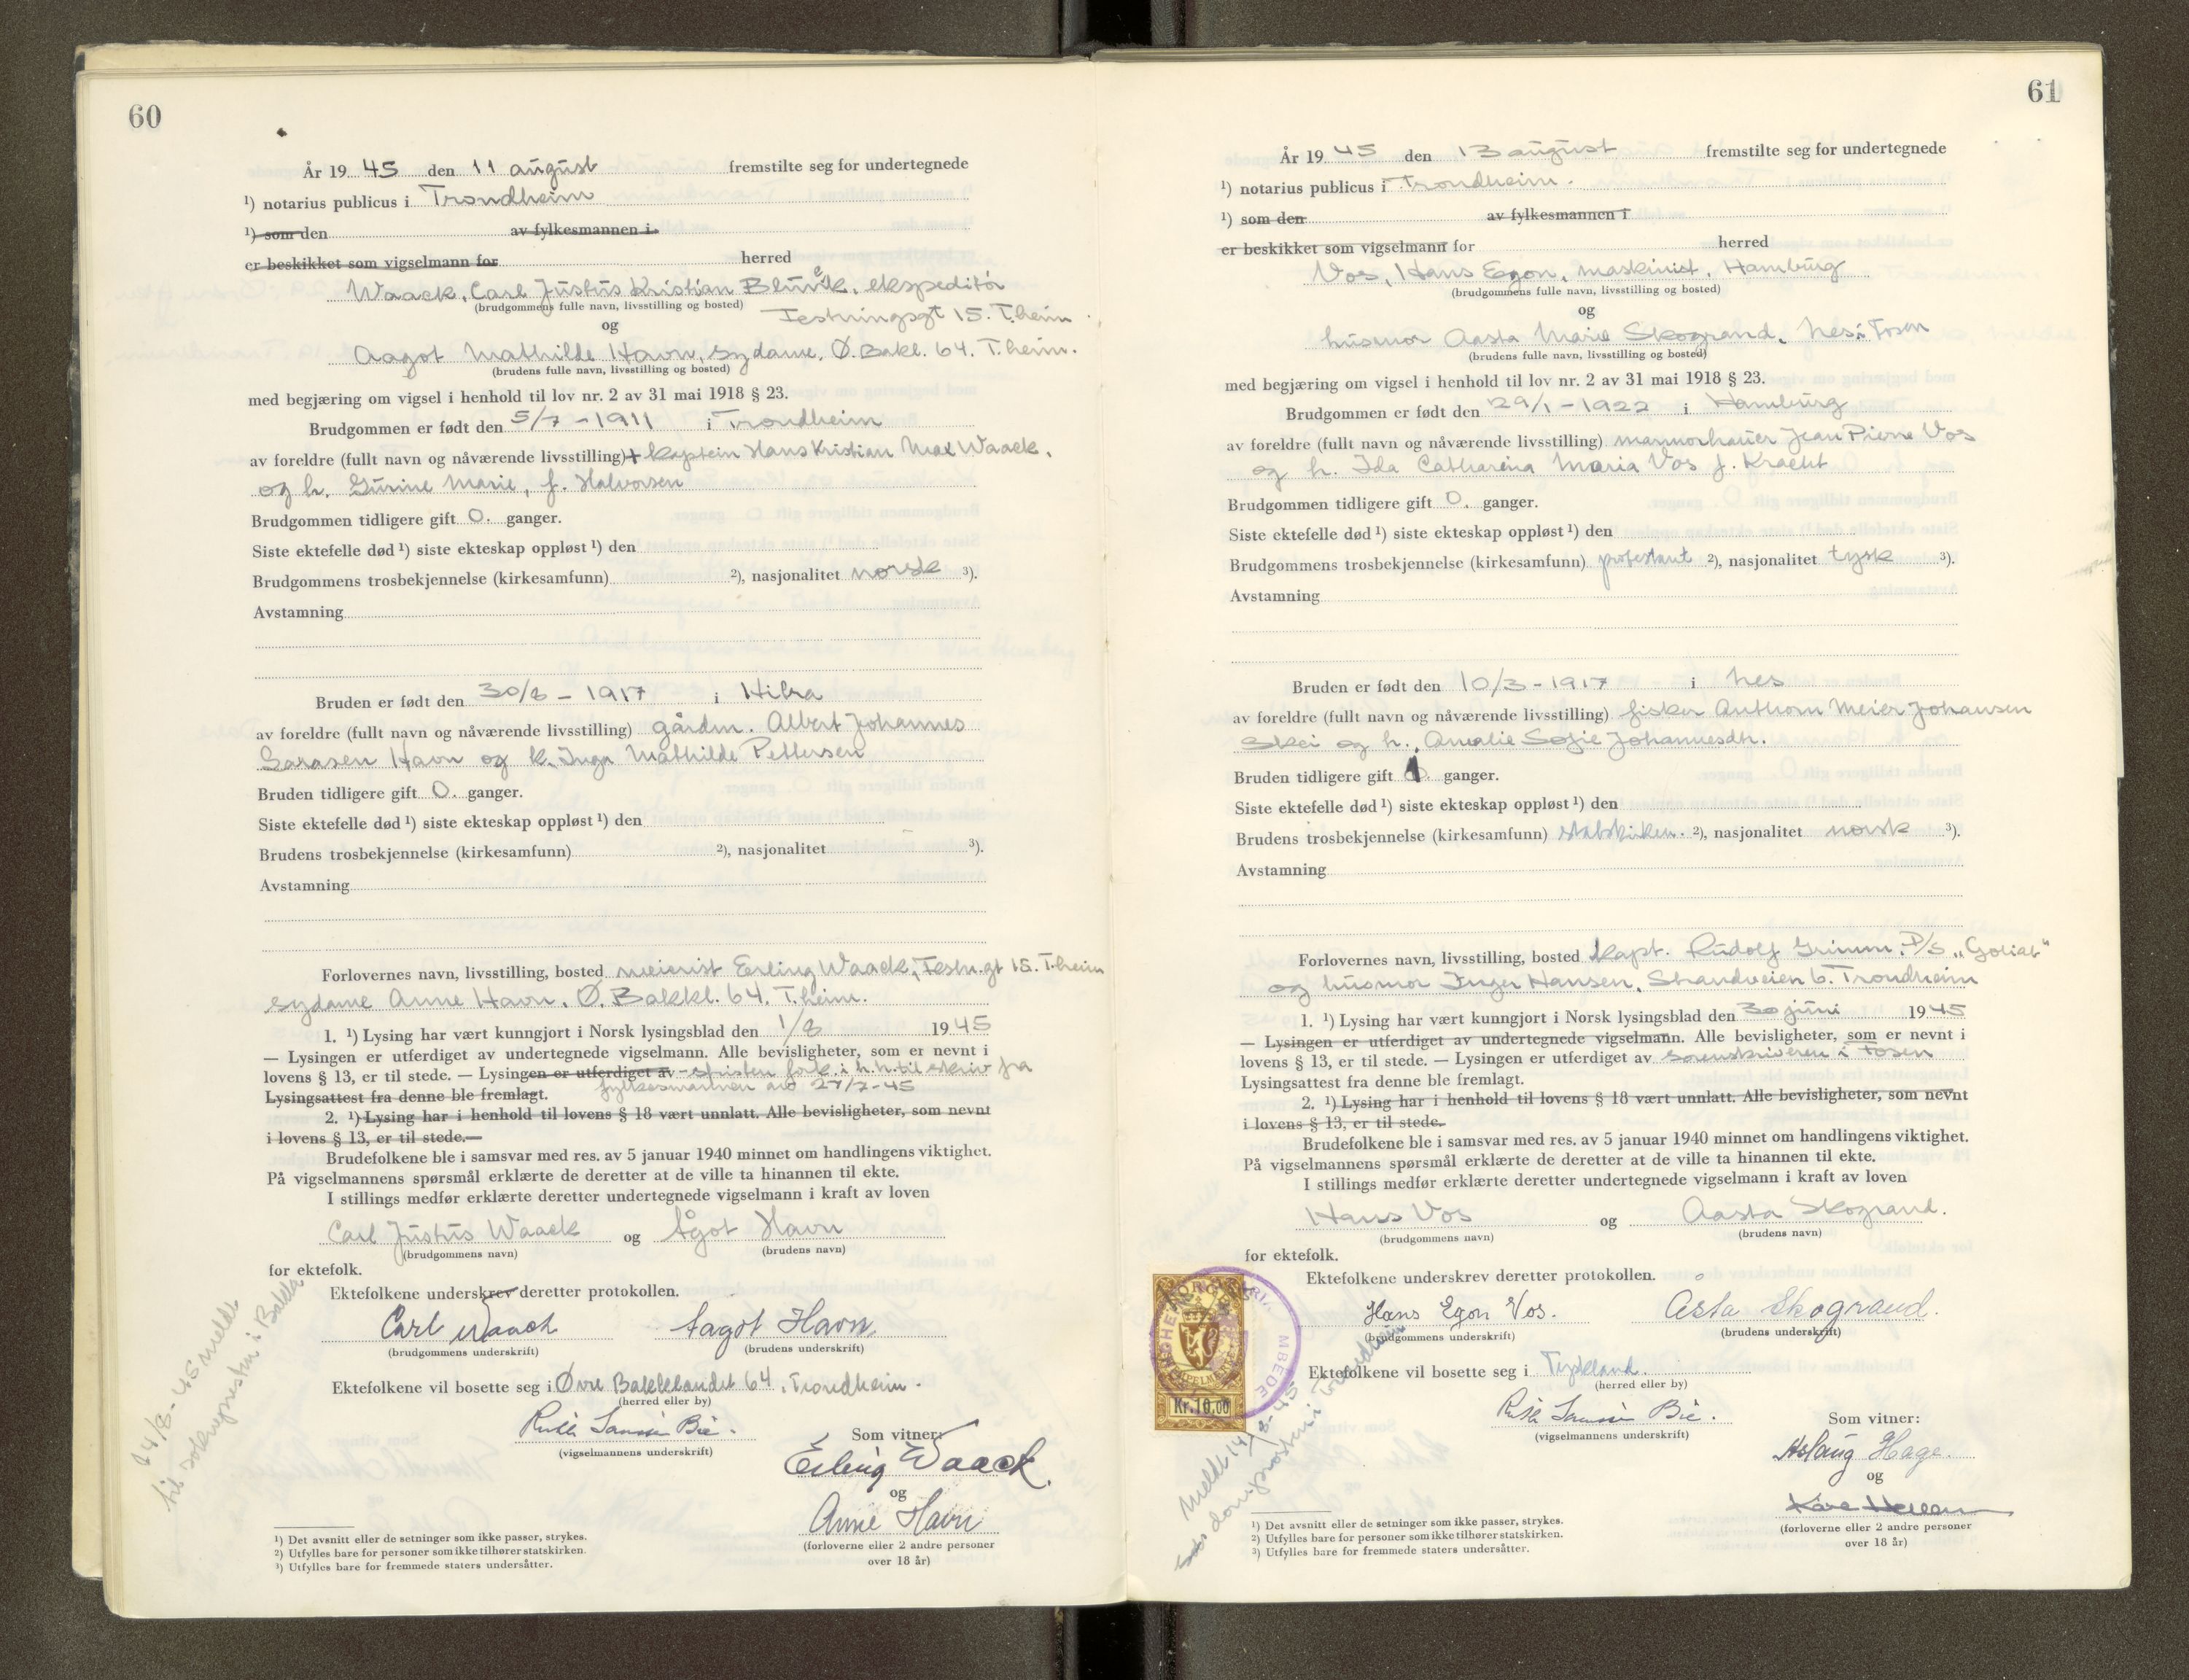 60
År 19 45 den 11 august fremstilte seg for undertegnede
¹) notarius publicus i Trondheim
¹) som den av fylkesmannen i
er beskikket som vigselmann for herred
Waack, Carl Justus Kristian, ekspeditør
(brudgommens fulle navn, livsstilling og bosted)
Festningsgt 15. T.heim
og
Aagot Mathilde Havn, sydame, Ø. Bakl. 64. T.heim.
(brudens fulle navn, livsstilling og bosted)
med begjæring om vigsel i henhold til lov nr. 2 av 31 mai 1918 § 23.
Brudgommen er født den 5/7 - 1911 i Trondheim
av foreldre (fullt navn og nåværende livsstilling) + kaptein Hans Kristian Max Waack,
og h. Gurine Marie, f. Halvorsen
Brudgommen tidligere gift 0. ganger.
Siste ektefelle død ¹) siste ekteskap oppløst ¹) den
Brudgommens trosbekjennelse (kirkesamfunn) ²), nasjonalitet norsk ³).
Avstamning
Bruden er født den 30/8 - 1917 i Hitra
av foreldre (fullt navn og nåværende livsstilling) gårdm. Albert Johannes
Havn og k. Inga Mathilde Pettersen
Bruden tidligere gift 0. ganger.
Siste ektefelle død ¹) siste ekteskap oppløst ¹) den
Brudens trosbekjennelse (kirkesamfunn) ²), nasjonalitet ³).
Avstamning
Forlovernes navn, livsstilling, bosted meierist Erling Waack, Festn.gt 15. T.heim
sydame Anne Havn, Ø. Bakkl. 64. T.heim.
1. ¹) Lysing har vært kunngjort i Norsk lysingsblad den 1/8 1945
— Lysingen er utferdiget av undertegnede vigselmann. Alle bevisligheter, som er nevnt i
lovens § 13, er til stede. — Lysingen er utferdiget av - fristen fork. i h.h. til skriv fra
Lysingsattest fra denne ble fremlagt. fylkesmannen av 27/7-45
2. ¹) Lysing har i henhold til lovens § 18 vært unnlatt. Alle bevisligheter, som nevnt
i lovens § 13, er til stede.—
Brudefolkene ble i samsvar med res. av 5 januar 1940 minnet om handlingens viktighet.
På vigselmannens spørsmål erklærte de deretter at de ville ta hinannen til ekte.
I stillings medfør erklærte deretter undertegnede vigselmann i kraft av loven
Carl Justus Waack og Ågot Havn
(brudgommens navn) (brudens navn)
for ektefolk.
Ektefolkene underskrev deretter protokollen.
Carl Waack Aagot Havn
(brudgommens underskrift) (brudens underskrift)
Ektefolkene vil bosette seg i Øvre Bakklandet 64, Trondheim.
(herred eller by)
(vigselmannens underskrift)
Som vitner:
Erling Waack.
og
Anne Havn
(forloverne eller 2 andre personer
over 18 år)
14/8-45 meldt
til soknepresten i Bakke
¹) Det avsnitt eller de setninger som ikke passer, strykes.
²) Utfylles bare for personer som ikke tilhører statskirken.
³) Utfylles bare for fremmede staters undersåtter.
61
År 19 45 den 13 august fremstilte seg for undertegnede
¹) notarius publicus i Trondheim.
¹) som den av fylkesmannen i
er beskikket som vigselmann for herred
Vos, Hans Egon, maskinist, Hamburg
(brudgommens fulle navn, livsstilling og bosted)
og
husmor Aasta Marie Skogrand, Nes i Fosen
(brudens fulle navn, livsstilling og bosted)
med begjæring om vigsel i henhold til lov nr. 2 av 31 mai 1918 § 23.
Brudgommen er født den 29/1 - 1922 i Hamburg
av foreldre (fullt navn og nåværende livsstilling) marmorhauer Jean Pierre Vos
og h. Ida Catharina Maria Vos f. Kracht
Brudgommen tidligere gift 0. ganger.
Siste ektefelle død ¹) siste ekteskap oppløst ¹) den
Brudgommens trosbekjennelse (kirkesamfunn) protestant ²), nasjonalitet tysk ³).
Avstamning
Bruden er født den 10/3 - 1917 i Nes
av foreldre (fullt navn og nåværende livsstilling) fisker Anthorn Meier Johansen
Skei og h. Amalie Sofie Johannesdtr.
Bruden tidligere gift 1 ganger.
Siste ektefelle død ¹) siste ekteskap oppløst ¹) den
Brudens trosbekjennelse (kirkesamfunn) statskirken. ²), nasjonalitet norsk ³).
Avstamning
Forlovernes navn, livsstilling, bosted kapt. Rudolf Grimm, D/S "Goliat"
og husmor Inger Hansen, Strandveien 6. Trondheim
1. ¹) Lysing har vært kunngjort i Norsk lysingsblad den 30 juni 1945
— Lysingen er utferdiget av undertegnede vigselmann. Alle bevisligheter, som er nevnt i
lovens § 13, er til stede. — Lysingen er utferdiget av sorenskriveren i Fosen
Lysingsattest fra denne ble fremlagt.
2. ¹) Lysing har i henhold til lovens § 18 vært unnlatt. Alle bevisligheter, som nevnt
i lovens § 13, er til stede.
Brudefolkene ble i samsvar med res. av 5 januar 1940 minnet om handlingens viktighet.
På vigselmannens spørsmål erklærte de deretter at de ville ta hinannen til ekte.
I stillings medfør erklærte deretter undertegnede vigselmann i kraft av loven
Hans Vos og Aasta Skogrand.
(brudgommens navn) (brudens navn)
for ektefolk.
Ektefolkene underskrev deretter protokollen.
Hans Egon Vos. Asta Skogrand.
(brudgommens underskrift) (brudens underskrift)
Ektefolkene vil bosette seg i Tyskland.
(herred eller by)
(vigselmannens underskrift)
Som vitner:
Aslaug Hage.
og
(forloverne eller 2 andre personer
over 18 år)
Kr. 10,00
Meldt 14/8-45
domprosten i Trondheim
¹) Det avsnitt eller de setninger som ikke passer, strykes.
²) Utfylles bare for personer som ikke tilhører statskirken.
³) Utfylles bare for fremmede staters undersåtter.